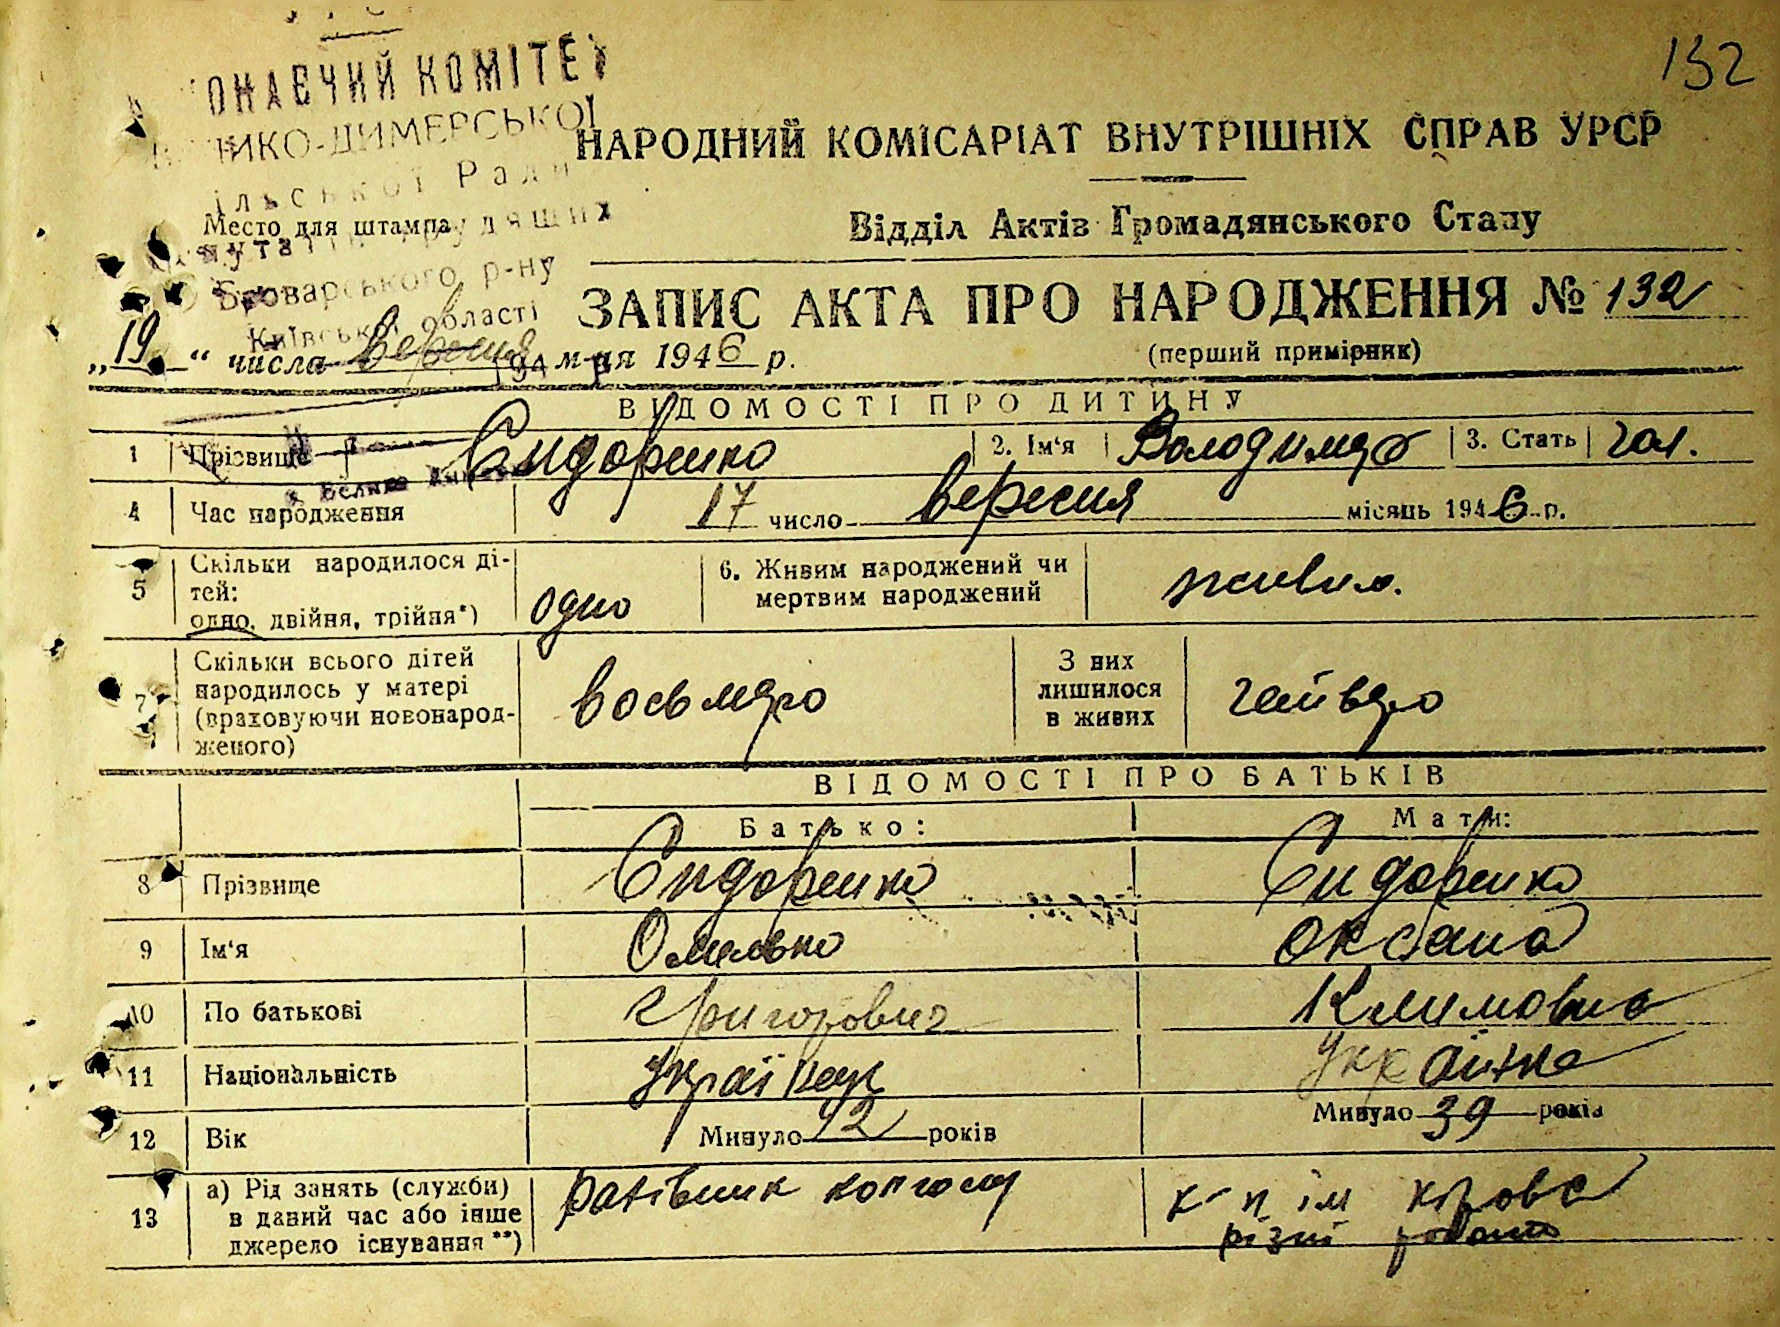 132
НАРОДНИЙ КОМІСАРІАТ ВНУТРІШНІХ СПРАВ УРСР
Відділ Актів Громадянського Стану
ОНАВЧИЙ КОМІТЕ
ИКО-ДИМЕРСЬКОЇ
ільської Ради
Место для штампа
Броварського р-ну
Київської області
ЗАПИС АКТА ПРО НАРОДЖЕННЯ № 132
(перший примірник)
„19“ числа вересня м-ця 1946 р.
ВІДОМОСТІ ПРО ДИТИНУ
1 Прізвище Сидоренко 2. Ім‘я Володимер 3. Стать чол.
4 Час народження 17 число вересня місяць 1946 р.
5 Скільки народилося ді-
тей:
одно, двійня, трійня*) одно
6. Живим народжений чи
мертвим народжений живим.
7 Скільки всього дітей
народилось у матері
(враховуючи новонарод-
женого) восьмеро
З них
лишилося
в живих четверо
ВІДОМОСТІ ПРО БАТЬКІВ
Батько: Мати:
8 Прізвище Сидоренко Сидоренко
9 Ім‘я Омелько Оксана
10 По батькові Григорович Климовна
11 Національність Українец Українка
12 Вік Минуло 42 років Минуло 39 років
13 а) Рід занять (служби)
в даний час або інше
джерело існування**)
колгоспу
к-п ім кірова
різні роботи